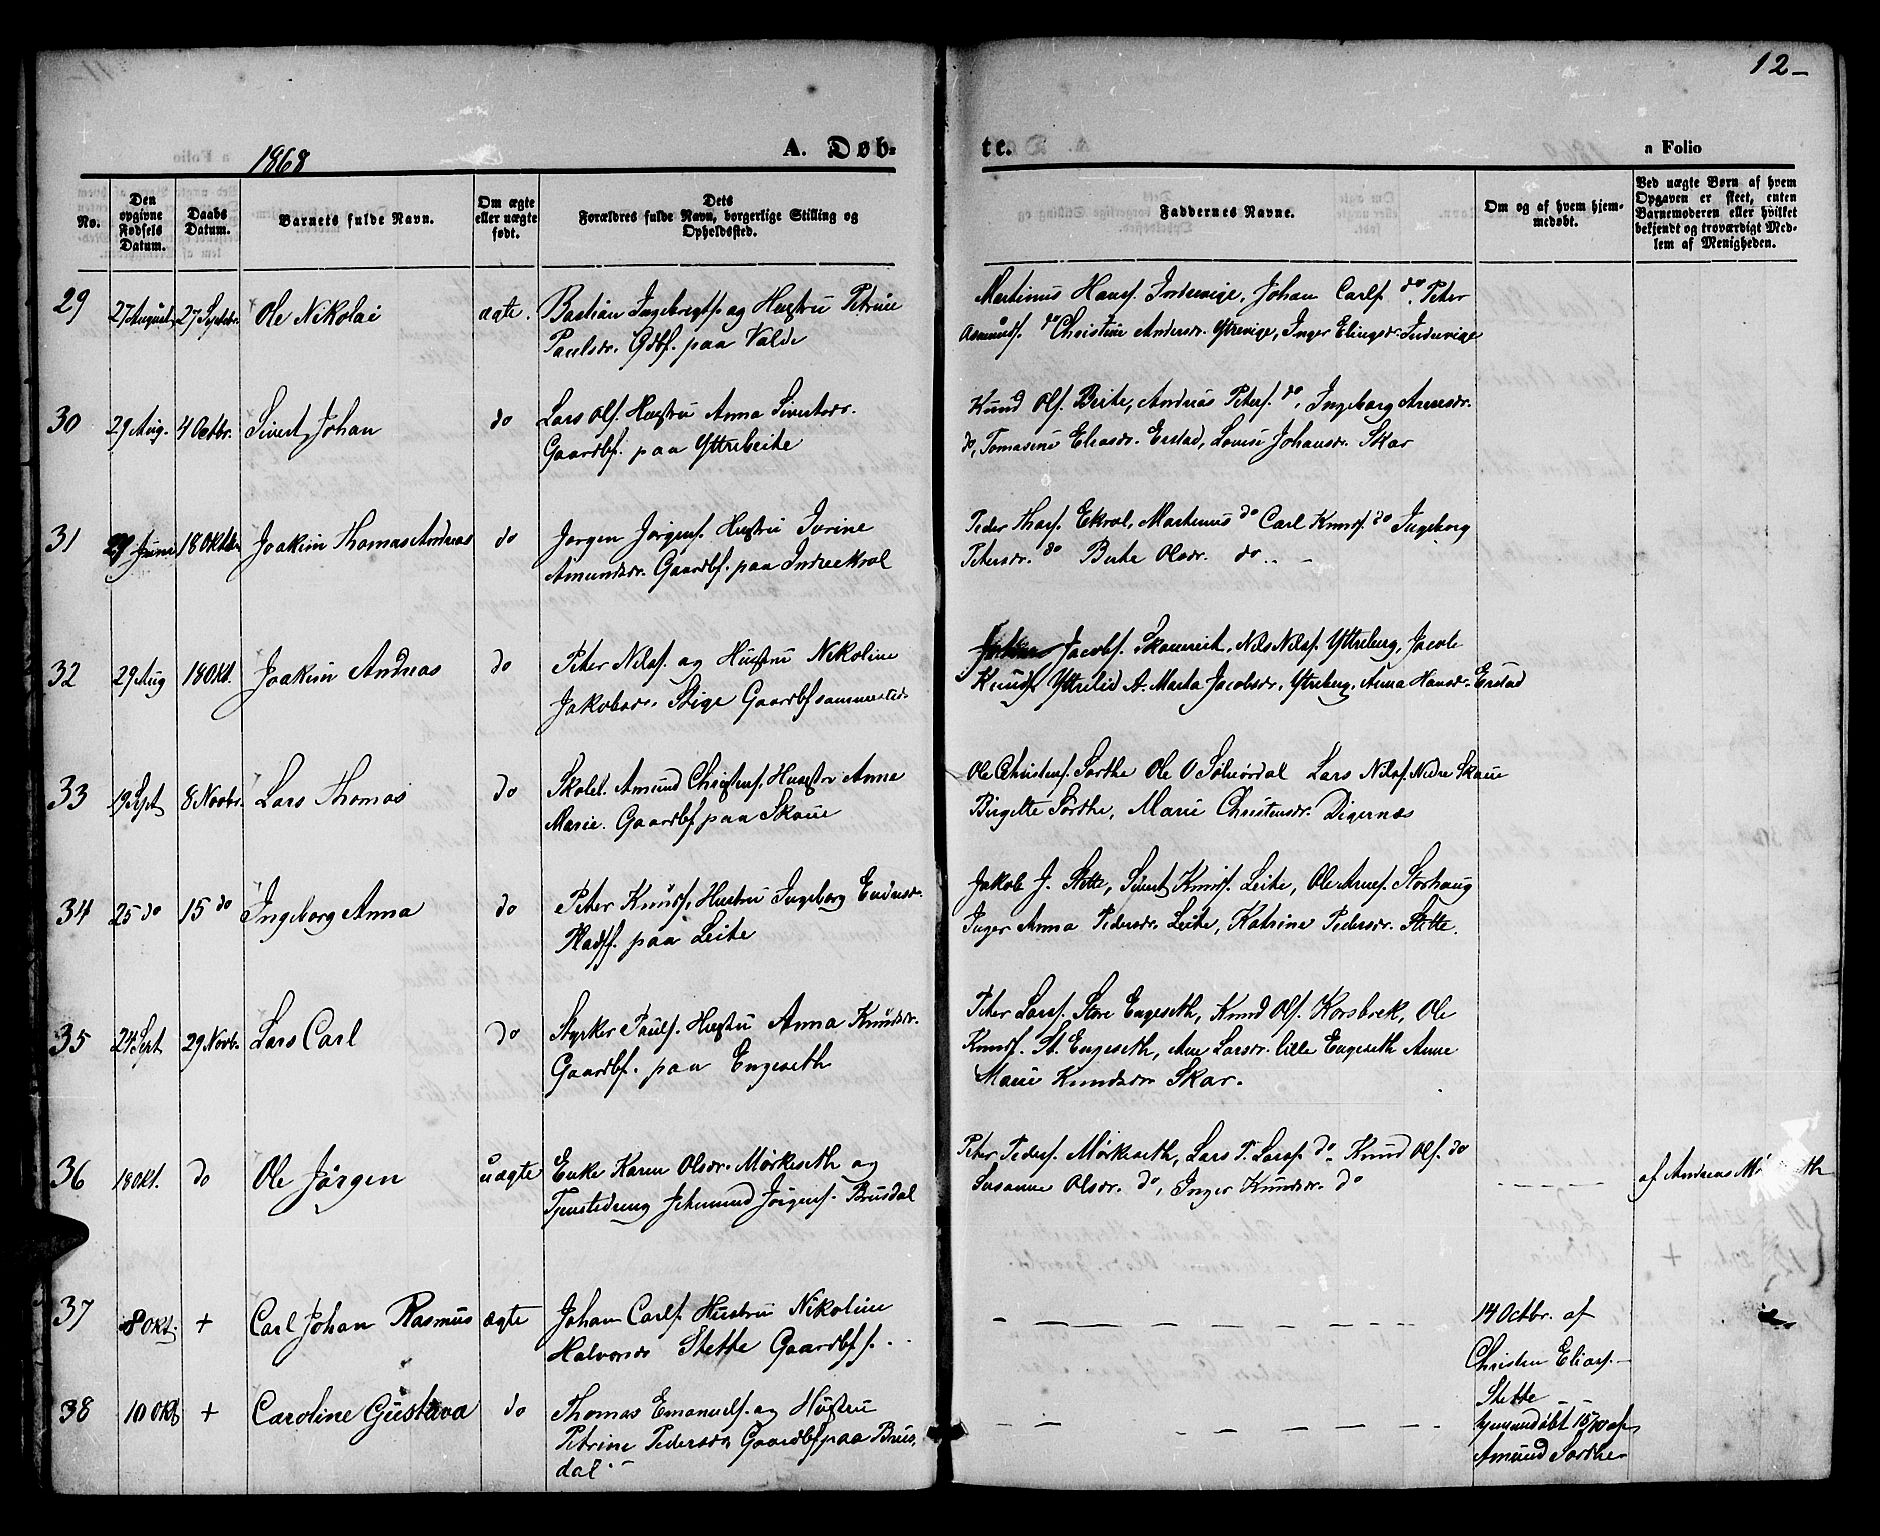 12-
1868
A. Døb-
te.
a Folio
No.
Den
opgivne
Fødsels
Datum.
Daabs
Datum.
Barnets fulde Navn.
Om ægte
eller uægte
født.
Dets
Forældres fulde Navn, borgerlige Stilling og
Opholdssted.
Faddernes Navne.
Om og af hvem hjem-
medøbt.
Ved uægte Børn af hvem
Opgaven er skeet, enten
Barnemoderen eller hvilket
bekjendt og troværdigt Med-
lem af Menigheden.
29
27 August
27 Septebr.
Ole Nikolai
ægte.
Bastian Ingebregtss. og Hustru Petrine
Paulsdr. Gdbf. paa Valde
Martinus Hansf. Indrevige, Johan Carlf. do, Peter
Asmundf. do Christine Andersdr. Yttrevige, Inger Elingsdr. Indrevige
30
29 Aug.
4 Octbr.
Sivert Johan
do
Lars Olf. Hustru Anna Sivertsdr.
Gaardbf. paa Yttreleite
Knud Olf. Leite, Andreas Petersf. do, Ingeborg Arnesdr.
do, Tomasine Eliasdr. Erstad, Lovise Johansdr. Skar
31
29 Juni
18 Oktbr
Joakim Thomas Andreas
do
Jørgen Jørgensf. Hustru Ivrine
Amundsdr. Gaardbf. paa Indreekrol
Peder Thorsf. Ekrol, Martinus do Carl Knudsf. do Ingeborg
Petersdr. do Berte Olsdr. do
32
29 Aug
18 Okt.
Joakim Andreas
do
Peter Nilsf. og Hustru Nikoline
Jakobsdr. Stige Gaardbf sammesteds
Jacobf. Skoureit, Nils Nilsf. Yttreberg, Jacob
Knudsf. Yttrelid A. Marta Jacobsdr. Ytreberg, Anna Hansdr. Erstad
33
19 Sept
8 Novbr.
Lars Thomas
do
Skolel. Amund Christensf. Hustru Anna
Marie. Gaardbf. paa Skoue
Ole Christensf. Sorthe Ole O Sølnørdal Lars Nilsf Nedre Skoue
Birgitte Sorthe, Marie Christensdr. Digernæs
34
25 do
15 do
Ingeborg Anna
do
Peter Knudsf. Hustru Ingeborg Endresdr.
Pladsf. paa Leite
Jakob J. Stette, Sivert Knudsf. Leite, Ole Arnesf. Storhaug
Inger Anna Pedersdr. Leite, Katrine Pedersdr. Stette.
35
24 Sept
29 Novb.
Lars Carl
do
Styrker Paulsf. Hustru Anna Knudsdr.
Gaardbf. paa Engeseth
Peter Larsf. Store Engeseth, Knud Olf. Korsbrek, Ole
Knudsf. St. Engeseth, Ane Larsdr. lille Engeseth Anne
Marie Knudsdr Skar.
36
18 Okt.
do
Ole Jørgen
uægte
Enke Karen Olsdr. Mørkeseth og
Tjenstedreng Jetmund Jørgensf. Brusdal
Peter Pedersf. Mørkeseth, Lars P. Larsf do Knud Olf. do
Susanne Olsdr. do, Inger Knudsdr. do
af Andreas
37
8 Okt.
+
Carl Johan Rasmus
ægte
Johan Carlf. Hustru Nikoline
Halvorsdr Stette Gaardbf f.
14 Octbr. af
Christen Eliasf.
Stette
38
10 Okt
+
Caroline Gustava
do
Thomas Emanuelsf. og Hustru
Petrine Pedersdr Gaardbf paa Brus-
dal
hjemmedøbt 15/10 af
Amund Sorthe